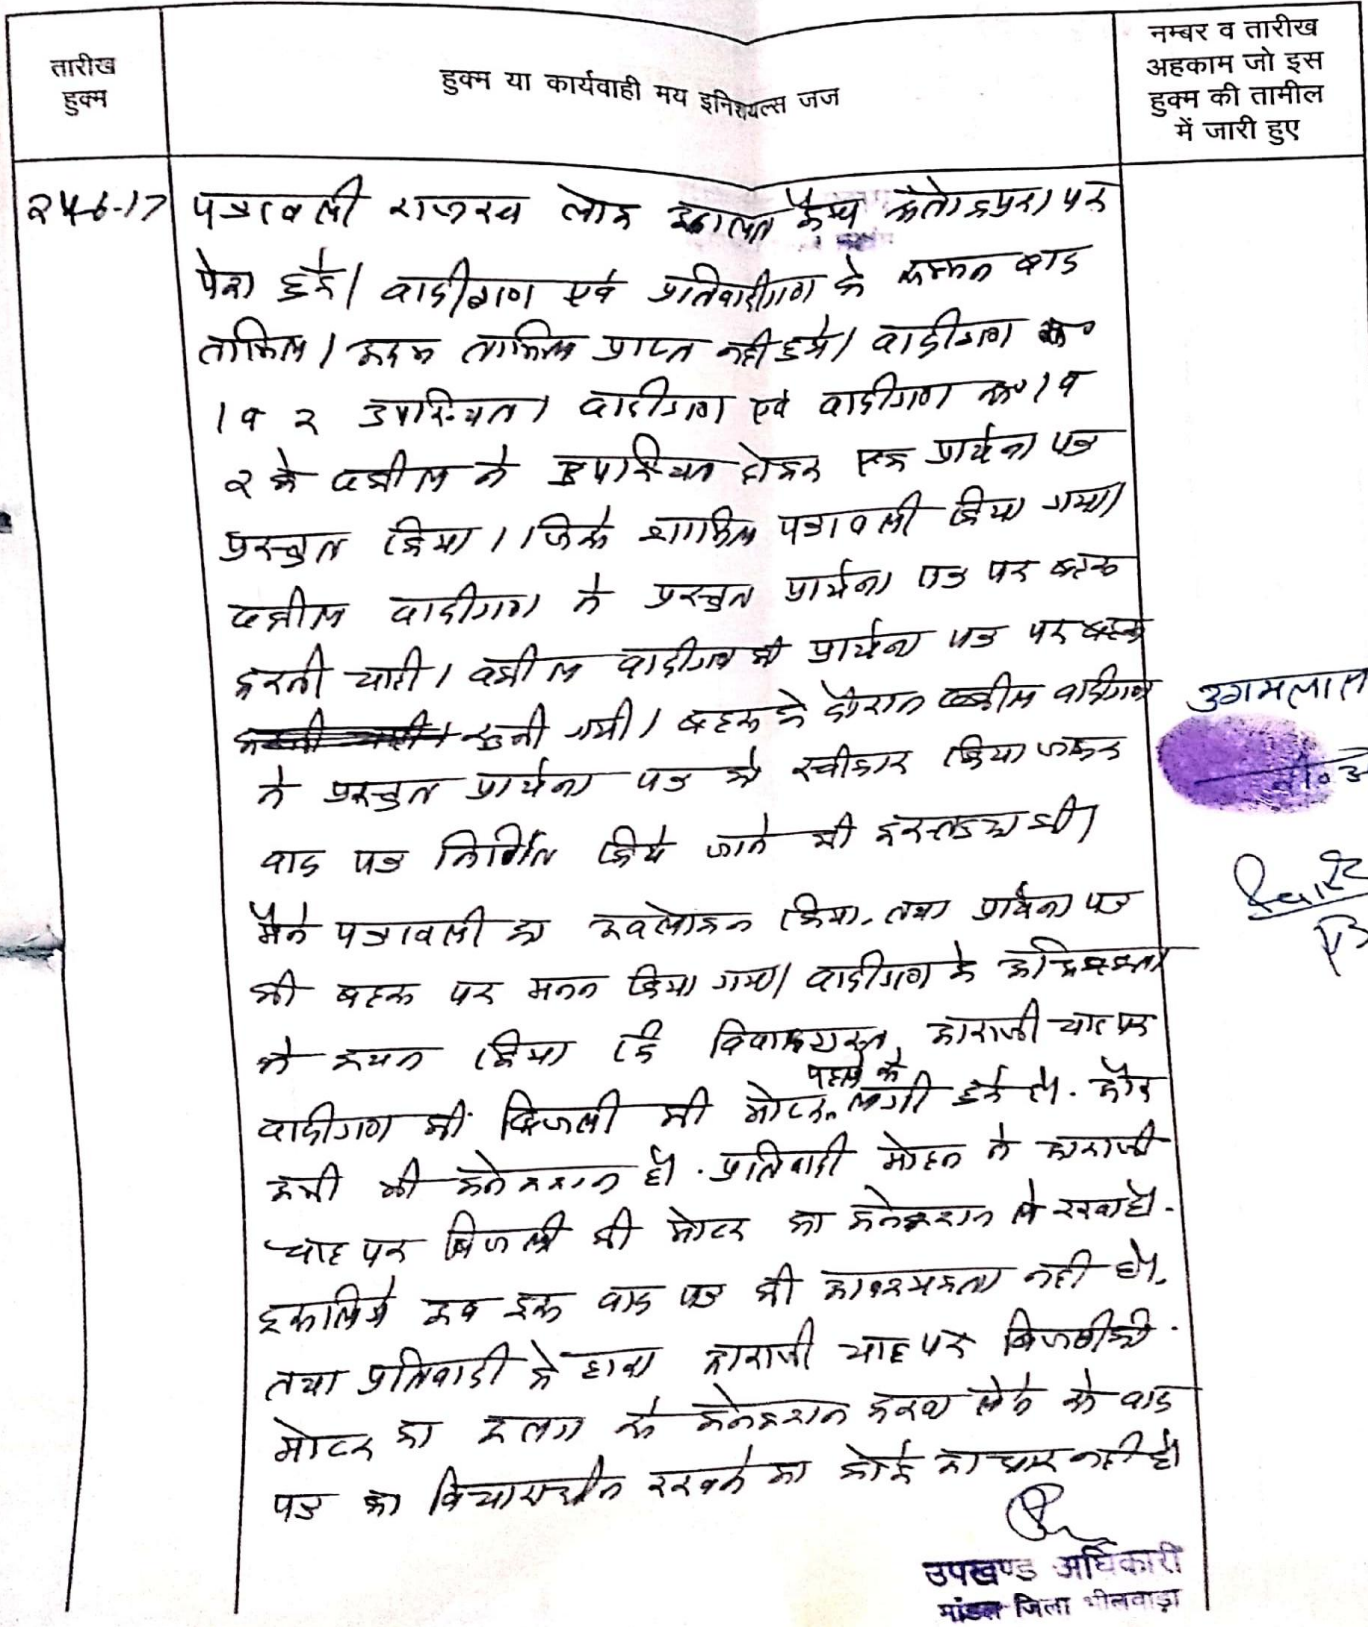 तारीख
हुक्म
हुक्म या कार्यवाही मय इनिशयल्स जज
नम्बर व तारीख
अहकाम जो इस
हुक्म की तामील
में जारी हुए
24-6-17
पत्रावली राजस्व लोक अदालत केम्प पर
पेश हुई। वादीगण एवं प्रतिवादीगण के सम्मन बाद
तामिल। अदम तामिल प्राप्त नही हुये। वादीगण
1 व 2 उपस्थित। वादीगण एवं वादीगण न0 1 व
2 के वकील ने उपस्थित होकर एक प्रार्थना पत्र
प्रस्तुत किया। जिसे शामिल पत्रावली किया गया।
वकील वादीगण ने प्रस्तुत प्रार्थना पत्र पर बहस
करनी चाही। वकील वादीगण की प्रार्थना पत्र पर बहस
सुनी गयी। बहस के दौरान वकील वादीगण
ने प्रस्तुत प्रार्थना पत्र को स्वीकार किया जाकर
वाद पत्र निर्णित किये जाने की
मैने पत्रावली का अवलोकन किया. तथा प्रार्थना पत्र
की बहस पर मनन किया गया। वादीगण के अभिभाषक
ने कथन किया कि विवादग्रस्त आराजी चाह पर
वादीगण की बिजली की मोटर पहले से लगी हुई है. और
उसी का कनेक्शन है. प्रतिवादी मोहन ने आराजी
चाह पर बिजली की मोटर का कनेक्शन ले रखा है.
इसलिये अब इस वाद पत्र की आवश्यकता नही है.
तथा प्रतिवादी के द्वारा आराजी चाह पर बिजली की
मोटर का अलग से कनेक्शन करवा लेने से वाद
पत्र का विचाराधीन रखने का कोई आधार नही है।
उगमलाल
उपखण्ड अधिकारी
मांडल जिला भीलवाड़ा